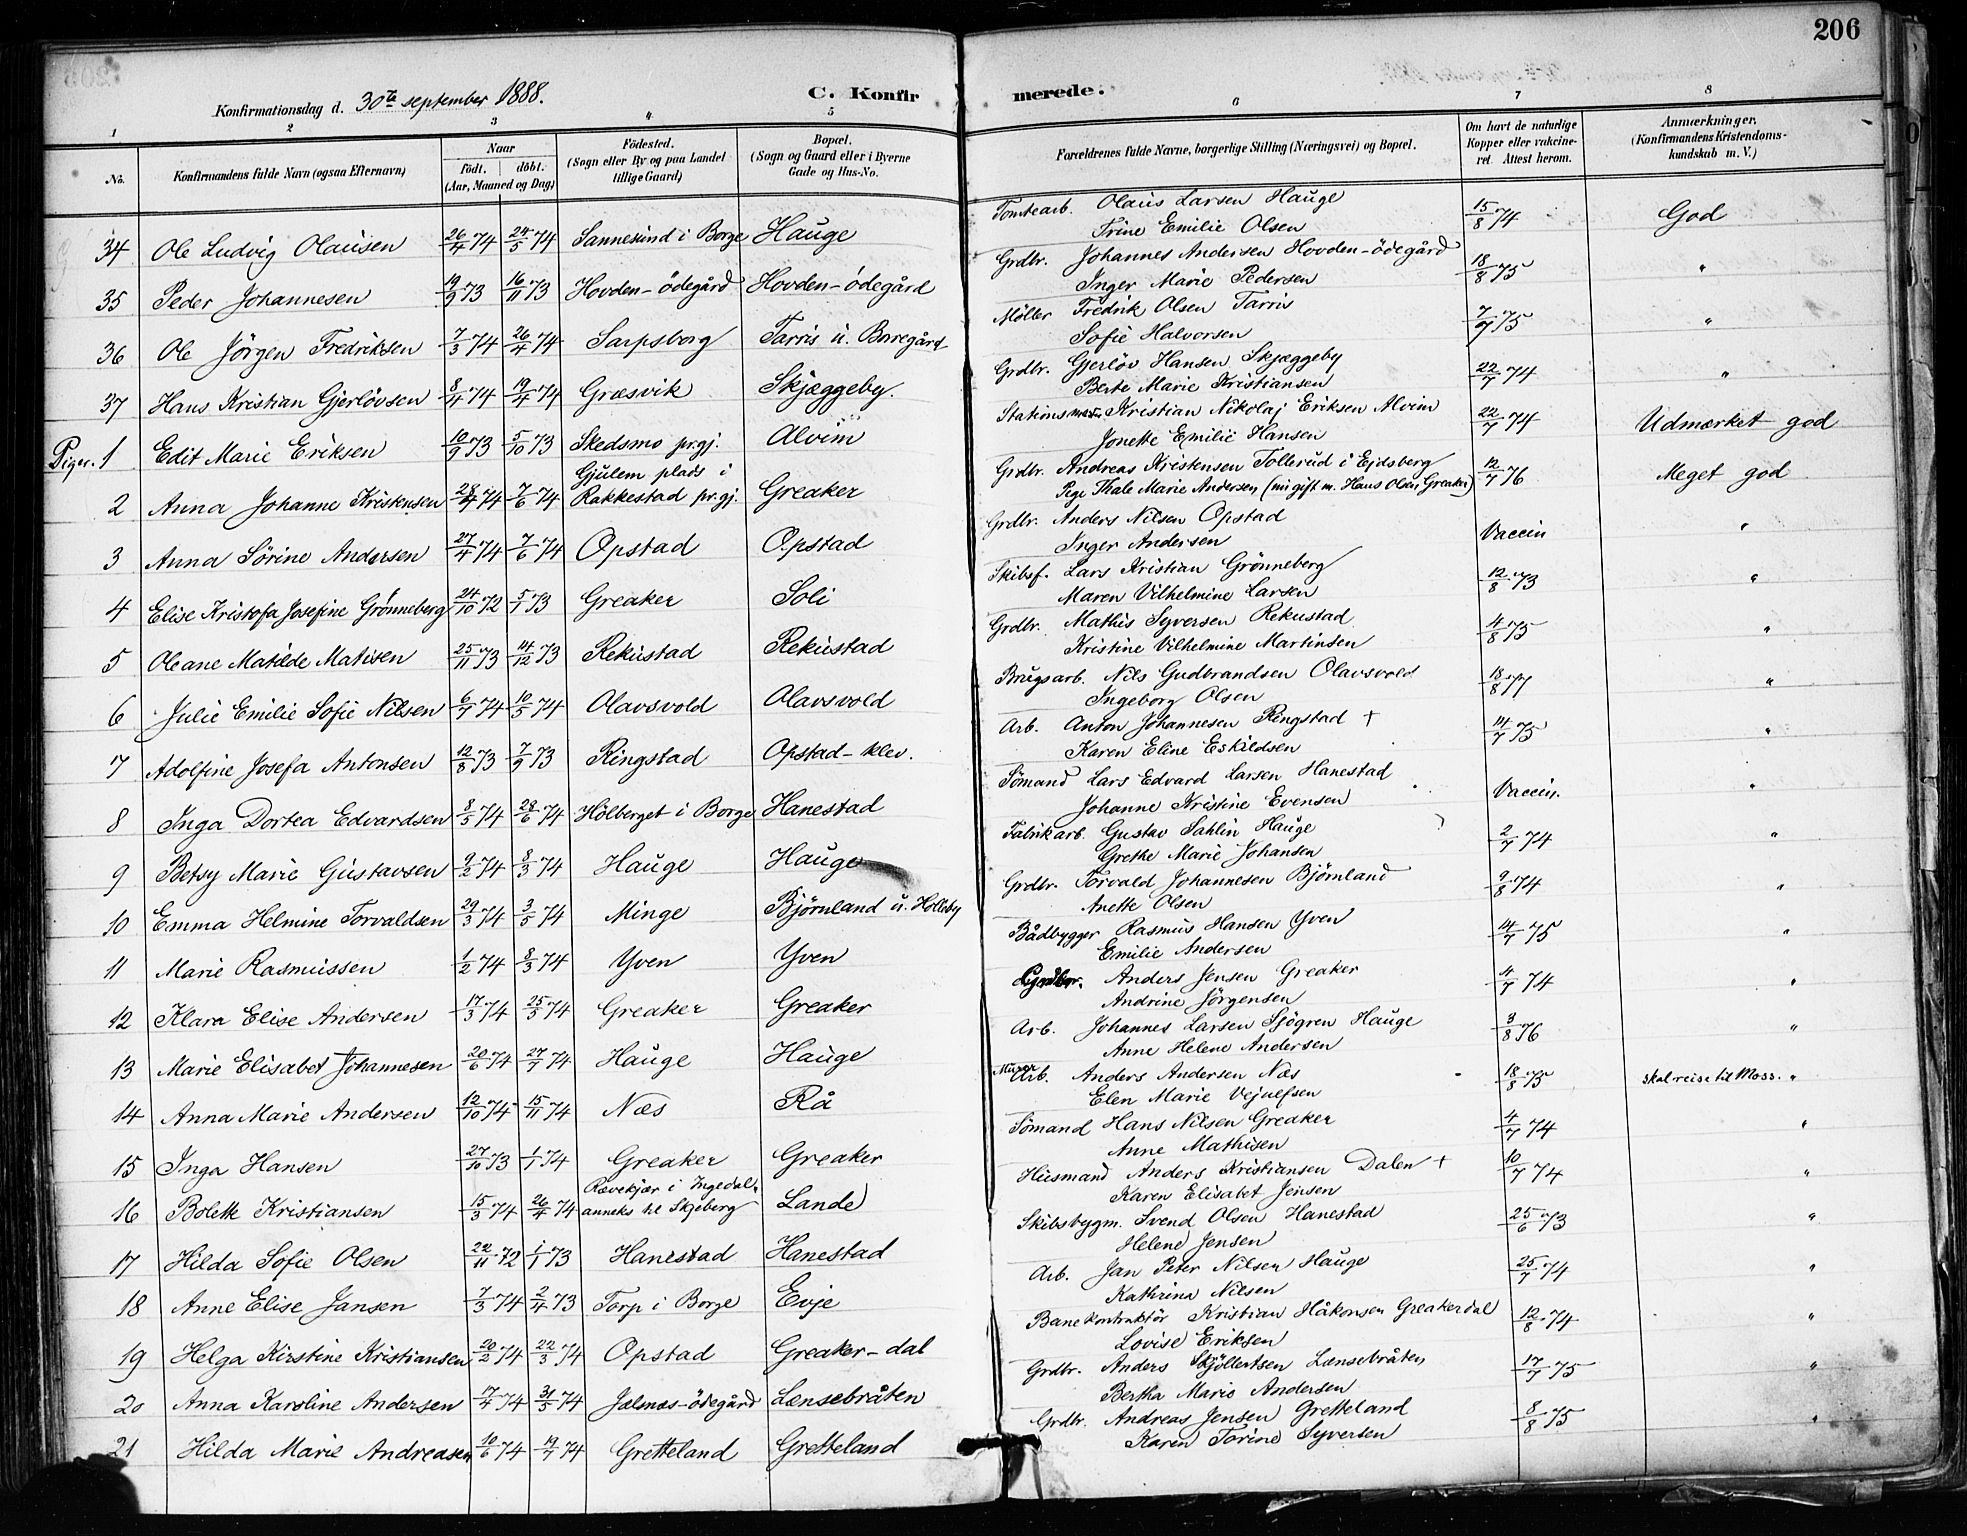 206
Konfirmationsdag d. 30te september 1888.
C. Konfirmerede.
1 2 3 4 5 6 7 8
No.
Konfirmandens fulde Navn (ogsaa Efternavn)
Naar født. døbt. (Aar, Maaned og Dag)
Fødested. (Sogn eller By og paa Landet tillige Gaard)
Bopæl. (Sogn og Gaard eller i Byerne Gade og Hus-No.
Forældrenes fulde Navne, borgerlige Stilling (Næringsvei) og Bopæl.
Om havt de naturlige Kopper eller vakcineret. Attest herom.
Anmærkninger. (Konfirmandens Kristendomskundskab m. V.)
34 Ole Ludvig Olausen 26/4 74 24/5 74 Sannesund i Borge Hauge Tomtearb. Olaus Larsen Hauge 15/8 74 God
Trine Emilie Olsen
35 Peder Johannesen 19/9 73 16/11 73 Hovden-ödegård Hovden-ödegård Grdbr. Johannes Andersen Hovden-ödegård 18/8 75 "
Inger Marie Pedersen
36 Ole Jörgen Fredriksen 7/3 74 26/4 74 Sarpsborg Tarris u. Boregård Möller Fredrik Olsen Tarris 7/9 75 "
Sofie Halvorsen
37 Hans Kristian Gjerlövsen 8/4 74 19/4 74 Græsvik Skjæggeby. Grdbr. Gjerlöv Hansen Skjæggeby 22/7 74 "
Berte Marie Kristiansen
Piger. 1 Edit Marie Eriksen 10/9 73 5/10 73 Skedsmo pr.gj. Alvim Kristian Nikolaj Eriksen Alvim 22/7 74 Udmærket god
Jonette Emilie Hansen
2 Anna Johanne Kristensen 28/4 74 7/6 74 Gjulem plads i Rakkestad pr.gj. Greaker Grdbr. Andreas Kristensen Tollerud i Ejdsberg 12/7 76 Meget god
Pige Thale Marie Andersen (nu gift m. Hans Olsen Greaker)
3 Anna Sörine Andersen 27/4 74 7/6 74 Opstad Opstad Grdbr. Anders Nilsen Opstad Vaccin "
Inger Andersen
4 Elise Kristofa Josefine Grönneberg 24/10 72 5/1 73 Greaker Soli Skibsf. Lars Kristian Grönneberg 12/8 73 "
Maren Vilhelmine Larsen
5 Oleane Matilde Matisen 25/11 73 14/12 73 Rekustad Rekustad Grdbr. Mathis Syversen Rekustad 4/8 75 "
Kristine Vilhelmine Martinsen
6 Julie Emilie Sofie Nilsen 74 10/5 74 Olavsvold Olavsvold Brugsarb. Nils Gudbrandsen Olavsvold 18/8 77 "
Ingeborg Olsen
7 Adolfine Josefa Antonsen 12/8 73 7/9 73 Ringstad Opstad-klev. Arb. Anton Johannesen Ringstad + 14/7 75 "
Karen Eline Eskildsen
8 Inga Dortea Edvardsen 8/5 74 28/6 74 Hölberget i Borge Hanestad Sömand Lars Edvard Larsen Hanestad Vaccin. "
Johanne Kristine Evensen
9 Betsy Marie Gustavsen 9/2 74 8/3 74 Hauge Hauge Fabrikarb. Gustav Sahlin Hauge 2/7 74 "
Grethe Marie Johansen
10 Emma Helmine Torvaldsen 29/3 74 3/5 74 Minge Björnland u. Holleby Grdbr. Torvald Johannesen Björnland 9/8 74 "
Anette Olsen
11 Marie Rasmussen 1/2 74 8/3 74 Yven Yven Bådbygger Rasmus Hansen Yven 14/7 75 "
Emilie Andersen
12 Klara Elise Andersen 17/3 74 25/5 74 Greaker Greaker Anders Jensen Greaker 4/7 74 "
Andrine Jörgensen
13 Marie Elisabet Johannesen 20/6 74 27/7 74 Hauge Hauge Arb. Johannes Larsen Sjögren Hauge 3/8 76 "
Anne Helene Andersen
14 Anna Marie Andersen 12/10 74 15/11 74 Næs Rå Murer Arb. Anders Andersen Næs 18/8 75 skal reise til Moss. "
Elen Marie
15 Inga Hansen 27/10 73 1/1 74 Greaker Greaker Sömand Hans Nilsen Greaker 4/7 74 "
Anne Mathisen
16 Bolette Kristiansen 15/3 74 26/4 74 Rævekjær i Ingedal anneks til Skjeberg Lande Husmand Anders Kristiansen Dalen + 10/7 74 "
Karen Elisabet Jensen
17 Hilda Sofie Olsen 22/11 72 1/1 73 Hanestad Hanestad Skibsbygm. Svend Olsen Hanestad 25/6 73 "
Helene Jensen
18 Anne Elise Jansen 7/3 74 2/4 73 Torp i Borge Evje Arb. Jan Peter Nilsen Hauge 25/7 74 "
Kathrina Nilsen
19 Helga Kirstine Kristiansen 20/2 74 22/3 74 Opstad Greaker-dal Banekontraktör Kristian Håkonsen Greakerdal 12/8 74 "
Lovise Eriksen
20 Anna Karoline Andersen 17/4 74 31/5 74 Jelmes-ödegård Lensebråten Grdbr. Anders Skjöllertsen Lænsebråten 17/7 75 "
Bertha Marie Andersen
21 Hilda Marie Andreasen 10/6 74 19/7 74 Gretteland Gretteland Grdbr. Andreas Jensen Gretteland 8/8 75 "
Karen Torine Syversen